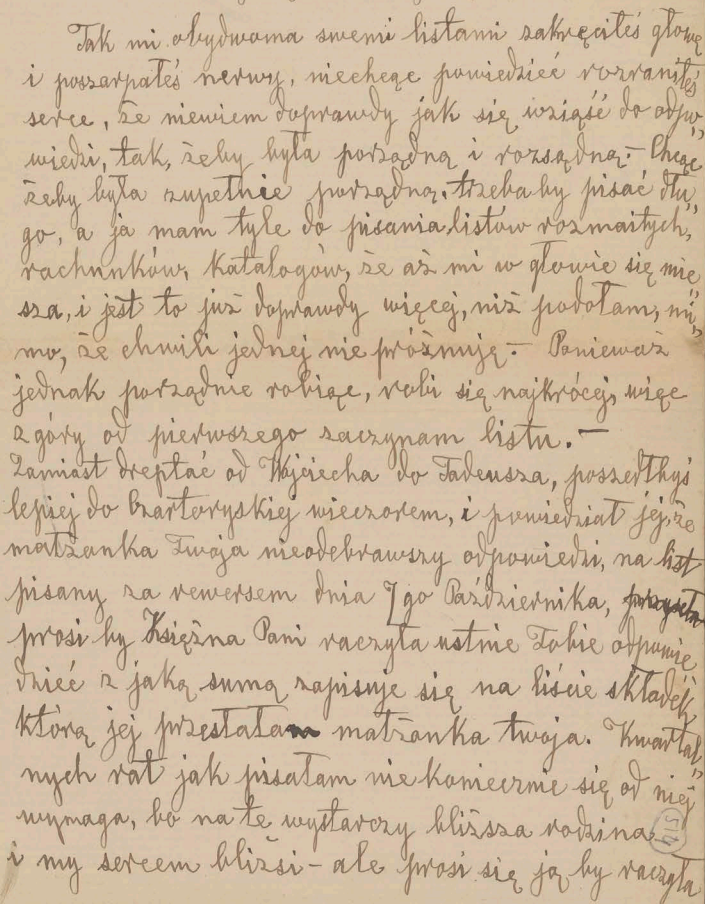 Tak mi obydwoma swemi listami zakręciłeś głowę
i poszarpałeś nerwy, niechcąc powiedzieć rozraniłeś
serce, że niewiem doprawdy jak się wziąść do odpo„
wiedzi, tak, żeby była porządną i rozsądną. – Chcąc
żeby była zupełnie porządną, trzeba by pisać dłu„
go, a ja mam tyle do pisania, listów rozmaitych,
rachunków, katalogów, że aż mi w głowie się mię„
sza, i jest to już doprawdy więcej, niż podołam, mi„
mo, że chwili jednej nie próżnuję. – Ponieważ
jednak porządnie robiąc, robi się najkrócej, więc
z góry od pierwszego zaczynam listu. –
Zamiast dreptać od Wojciecha do Tadeusza, poszedłbyś
lepiej do Czartoryskiej wieczorem, i powiedział jej, że
małżonka Twoja nieodebrawszy odpowiedzi, na list
pisany za rewersem dnia 7go Października,
prosi by Księżna Pani raczyła ustnie Tobie odpowie„
dzieć z jaką sumą zapisuje się na liście składek
którą jej przesłałam małżonka twoja. Kwartal„
nych rat jak pisałam niekoniecznie się od niej
wymaga, bo na te wystarczy bliższa rodzina
i my sercem bliżsi – ale prosi się ją by raczyła
514